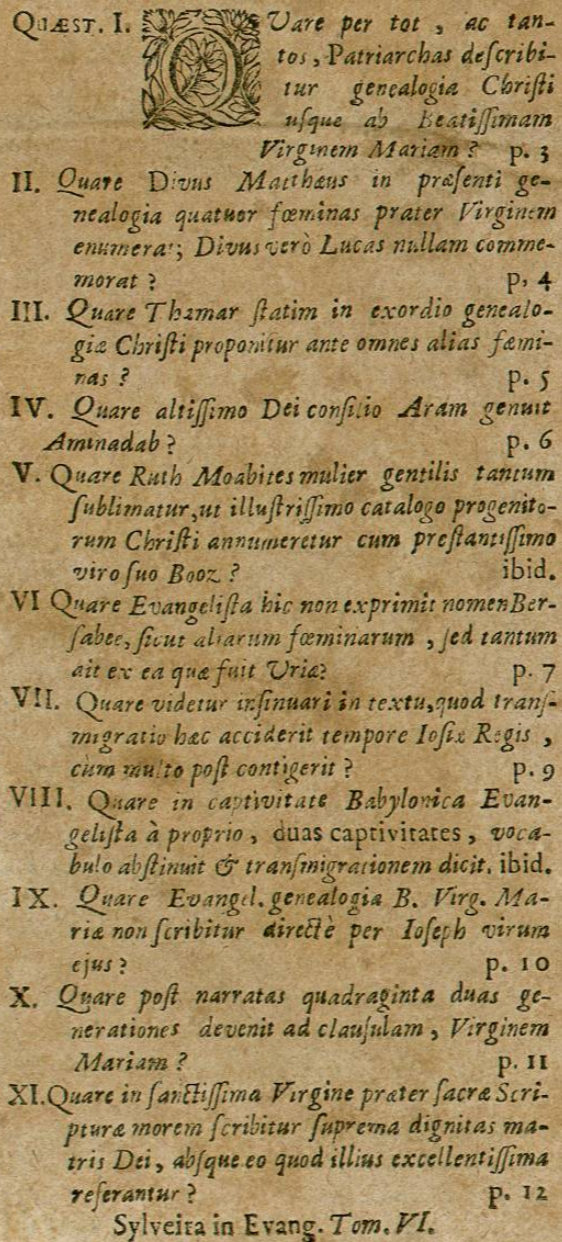 QUÆST. I. QUare per tot, ac tan-
tos, Patriarchas deſcribi-
tur genealogia Chriſti
uſque ab Beatiſſimam
Virginem Mariam? p. 3
II. Quare Divus Matthæus in præſenti ge-
nealogia quatuor fœminas præter Virginem
enumerat; Divus verò Lucas nullam comme-
morat? p. 4
III. Quare Thamar ſtatim in exordio genealo-
giæ Chriſti proponitur ante omnes alias fæmi-
nas? p. 5
IV. Quare altiſſimo Dei conſilio Aram genuit
Aminadab? p. 6
V. Quare Ruth Moabites mulier gentilis tantum
ſublimatur, ut illuſtriſſimo catalogo progenito-
rum Chriſti annumeretur cum preſtantiſſimo
viro ſuo Booz? ibid.
VI Quare Evangeliſta hic non exprimit nomen Ber-
ſabee, ſicut aliarum fœminarum, ſed tantum
ait ex ea quæ fuit Uriæ? p. 7
VII. Quare videtur inſinuari in textu, quod tranſ-
migratio hæc acciderit tempore Ioſiæ Regis,
cùm multo poſt contigerit? p. 9
VIII. Quare in captivitate Babylonica Evan-
geliſta à proprio, duas captivitates, voca-
bulo abſtinuit & tranſmigrationem dicit. ibid.
IX. Quare Evangel. genealogia B. Virg. Ma-
riæ non ſcribitur directè per Ioſeph virum
ejus? p. 10
X. Quare poſt narratas quadraginta duas ge-
nerationes devenit ad clauſulam, Virginem
Mariam? p. 11
XI. Quare in ſanctiſſima Virgine præter ſacræ Scri-
pturæ morem ſcribitur ſuprema dignitas ma-
tris Dei, abſque eo quod illius excellentiſſima
referantur? p. 12
Sylveira in Evang. Tom. VI.